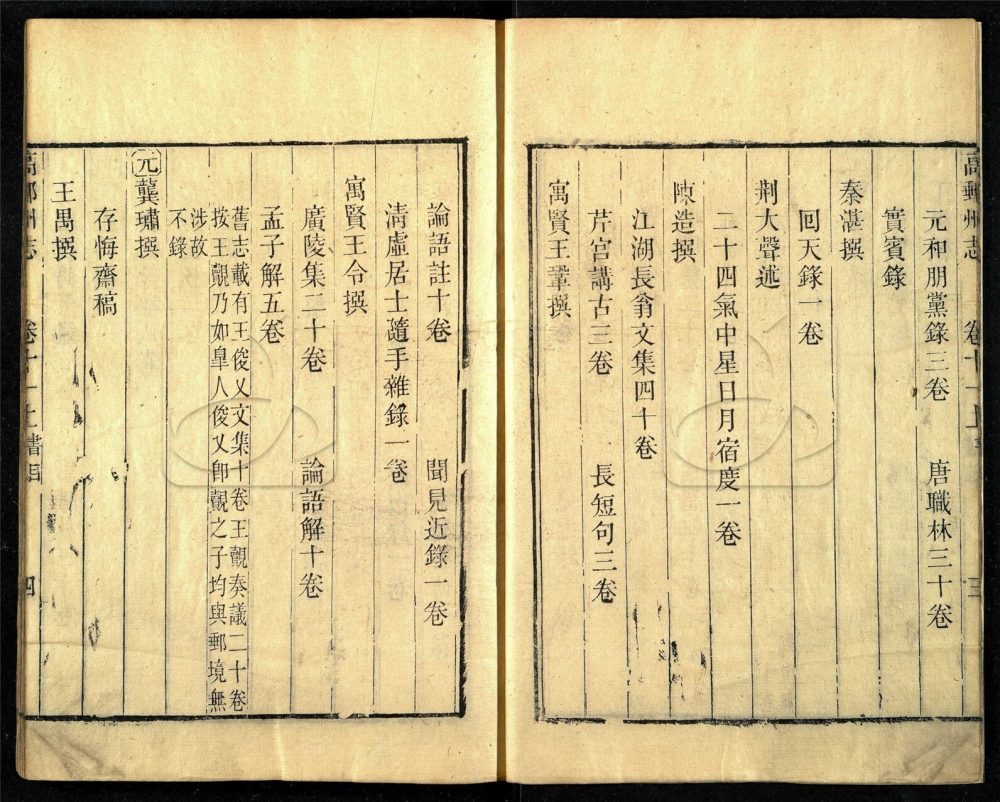 高郵州志 卷十一上 三
元和朋黨錄三卷 唐職林三十卷
實賓錄
秦湛撰
回天錄一卷
荆大聲述
二十四氣中星日月宿度一卷
陳造撰
江湖長翁文集四十卷
芹宮講古三卷 長短句三卷
寓賢王鞏撰
論語註十卷 聞見近錄一卷
淸虛居士隨手雜錄一卷
寓賢王令撰
廣陵集二十卷 論語解十卷
孟子解五卷
舊志載有王俊乂文集十卷王觀奏議二十卷
按王覿乃如臯人俊乂卽覿之子均與郵境無
涉故
不錄
元龔璛撰
存悔齋稿
王禺撰
高郵州志 卷十一上書目 四